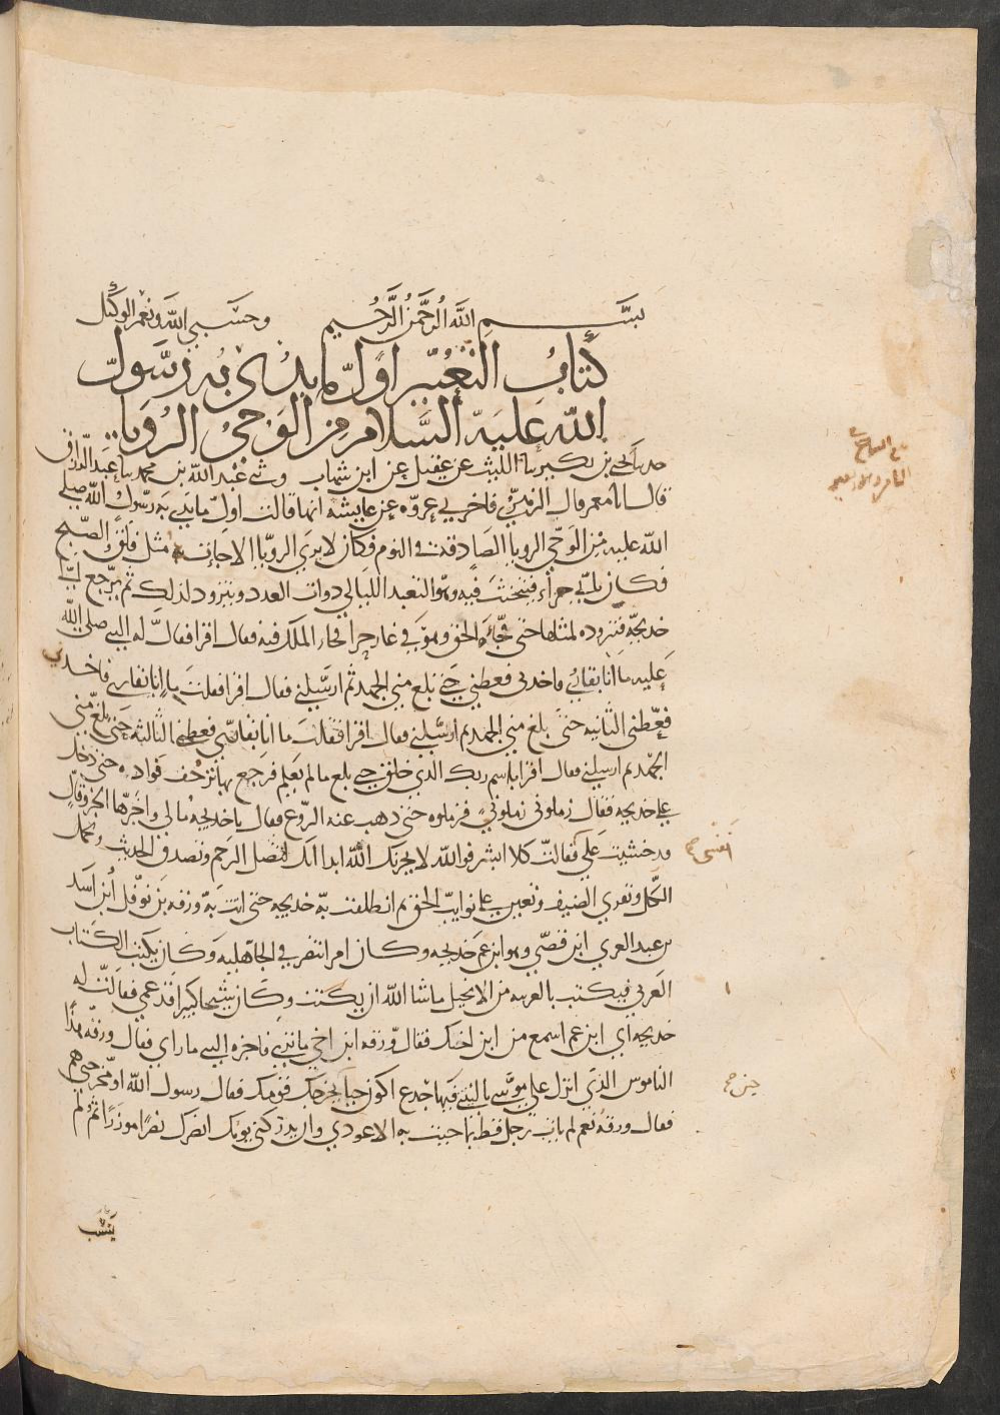 بسم الله الرحمن الرحيم وحسبي الله ونعم الوكيل
كتاب التعبير اول ما بدئ به رسول
الله عليه السلام من الوحي الرويا
حدثنا يحيى بن بكير نا الليث عن عقيل عن ابن شهاب وثني عبد الله بن محمد نا عبد الرزاق
قال انا معمر قال الزهري فاخبرني عروه عن عايشه انها قالت اول ما بدي به رسول الله صلى
الله عليه من الوحي الرويا الصادقة في النوم فكان لا يرى الرويا الا جات مثل فلق الصبح
فكان ياتي حراء فيتحنث فيه وهو التعبد الليالي دوات العدد ويتزود لذلك ثم يرجع الى
خديجه فتزوده لمثلها حتى فجاه الحق وهو في غار حرا فجاه الملك فيه فقال اقرا فقال له النبي صلى الله
عليه ما انا بقاري فاخدني فغطني حتى بلغ مني الجهد ثم ارسلني فقال اقرا فقلت ما انا بقاري فاخدني
فغطني الثانيه حتى بلغ مني الجهد ثم ارسلني فقال اقرا فقلت ما انا بقاري فغطني الثالثه حتى بلغ مني
الجهد ثم ارسلني فقال اقرا باسم ربك الذي خلق حتى بلغ ما لم يعلم فرجع بها ترجف فواده حتى دخل
على خديجه فقال زملوني زملوني فزملوه حتى ذهب عنه الروع فقال يا خديجه ما لي واخبرها الخبر وقال
قد خشيت علي فقالت كلا ابشر فوالله لا يخزيك الله ابدا انك لتصل الرحم وتصدق الحديث وتحمل
الكل وتقري الضيف وتعين على نوايب الحق ثم انطلقت به خديجه حتى اتت به ورقه بن نوفل ابن اسد
بن عبد العزي ابن قصي وهو ابن عم خديجه وكان امرا تنصر في الجاهليه وكان يكتب الكتاب
العربي فيكتب بالعربيه من الانجيل ما شا الله ان يكتب وكان شيخا كبيرا قد عمي فقالت له
خديجه اي ابن عم اسمع من ابن اخيك فقال ورقه ابن اخي ما ترى فاخبره النبي ما راى فقال ورقه هذا
الناموس الذي انزل على موسى يا ليتني فيها جدع اكون حيا يخرجك قومك فقال رسول الله او مخرجي هم
فقال ورقه نعم لم يات رجل قط بما جيت به الا عودي وان يدركني يومك انصرك نصرا موزرا ثم لم
ينشب
نفسي صح
حين صح